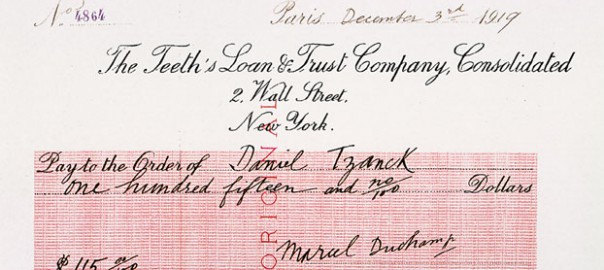 No. 4864 Paris December 3rd 1919
The Teeth's Loan & Trust Company, Consolidated
2, Wall Street.
New York.
Pay to the Order of Daniel Tzanck
one hundred fifteen and no/100 Dollars
ORIGINAL
Marcel Duchamp
$ 115 no/100